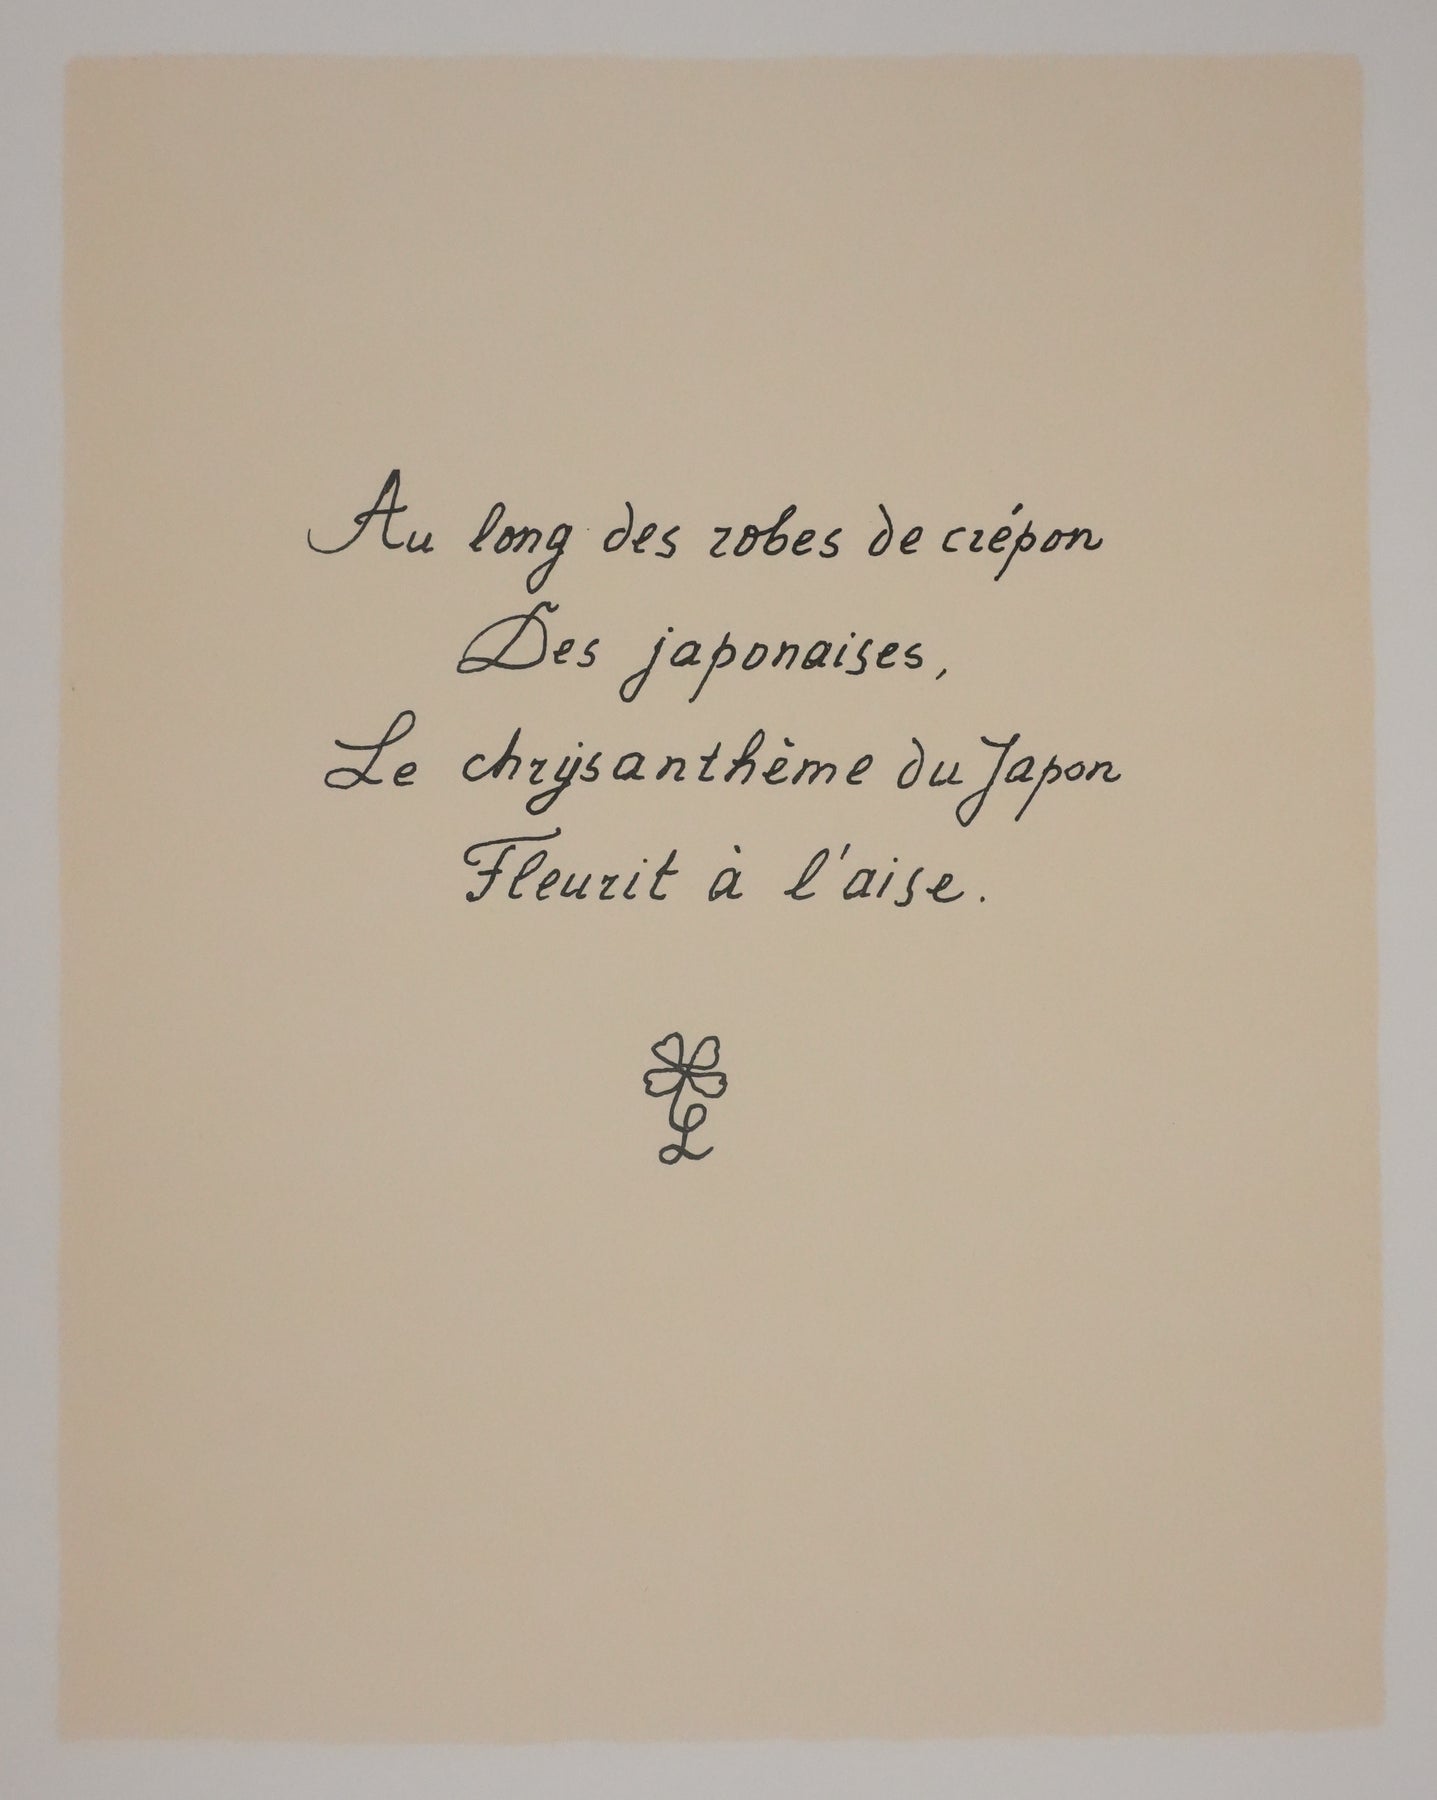 Au long des robes de crépon
Des japonaises,
Le chrysanthème du Japon
Fleurit à l'aise.
L